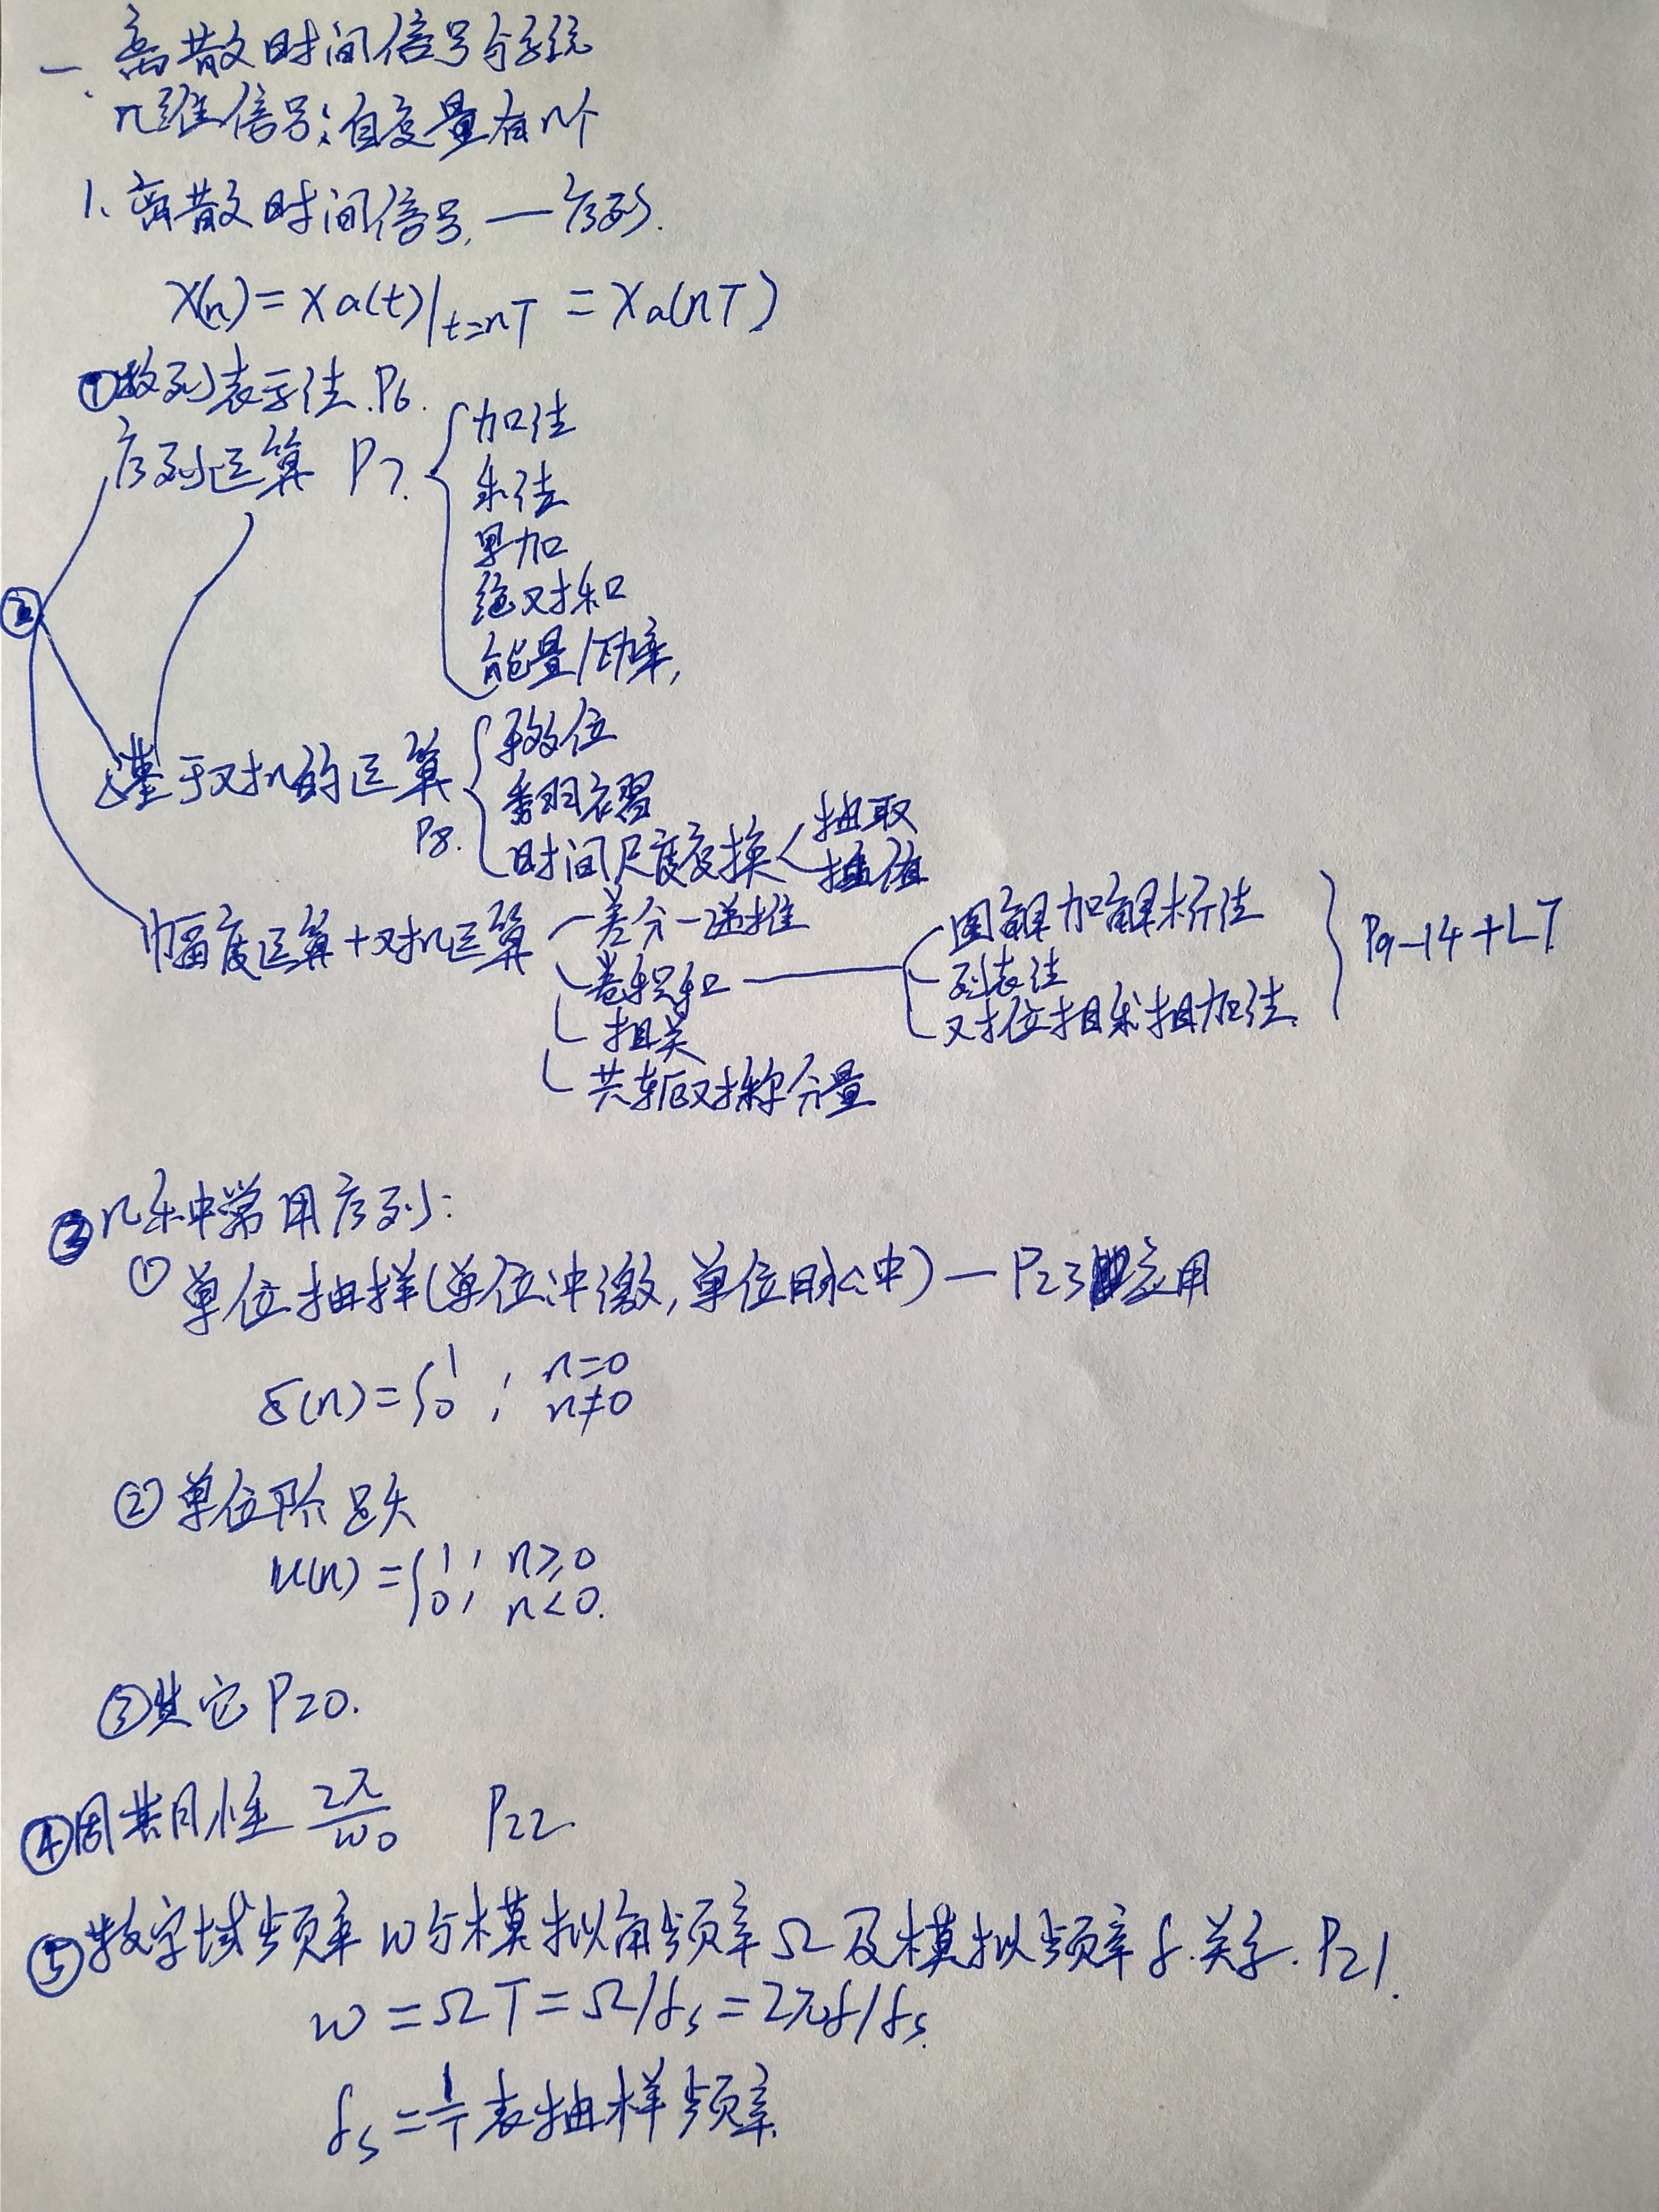 一、离散时间信号与系统
n维信号:自变量有n个
1、离散时间信号—序列.
x(n)=xa(t)|t=nT =xa(nT)
①数列表示法.P6.
② 序列运算 P7.
加法
乘法
累加
绝对和
能量/功率,
基于对n的运算 P8.
移位
翻褶
时间尺度变换
抽取
插值
幅度运算+对n运算
差分—递推
卷积和
图解加解析法
列表法
对位相乘相加法.
P9-14+LT
相关
共轭对称分量
③几种常用序列:
①单位抽样(单位冲激,单位脉冲)—P23应用
δ(n)={1, n=0
0, n≠0
②单位阶跃
u(n)={1, n≥0
0, n<0.
③其它P20.
④周期性 2π/w0 P22.
⑤数字域频率w与模拟角频率Ω及模拟频率f.关系.P21.
w=ΩT=Ω/fs=2πf/fs.
fs=1/T表抽样频率.